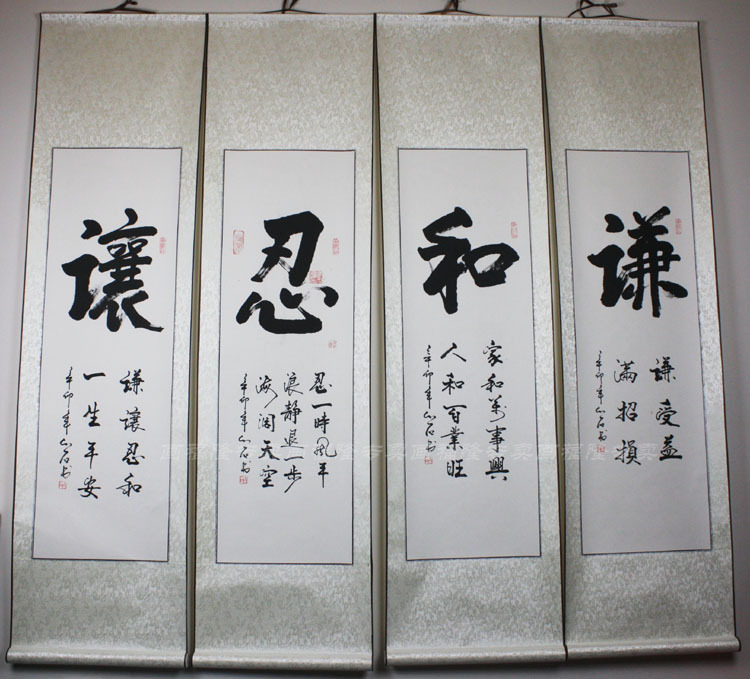 谦
谦受益
满招損
辛卯年山石书
和
家和萬事興
人和百業旺
辛卯年山石书
忍
忍一時風平
浪静退一步
海阔天空
辛卯年山石书
讓
谦讓忍和
一生平安
辛卯年山石书